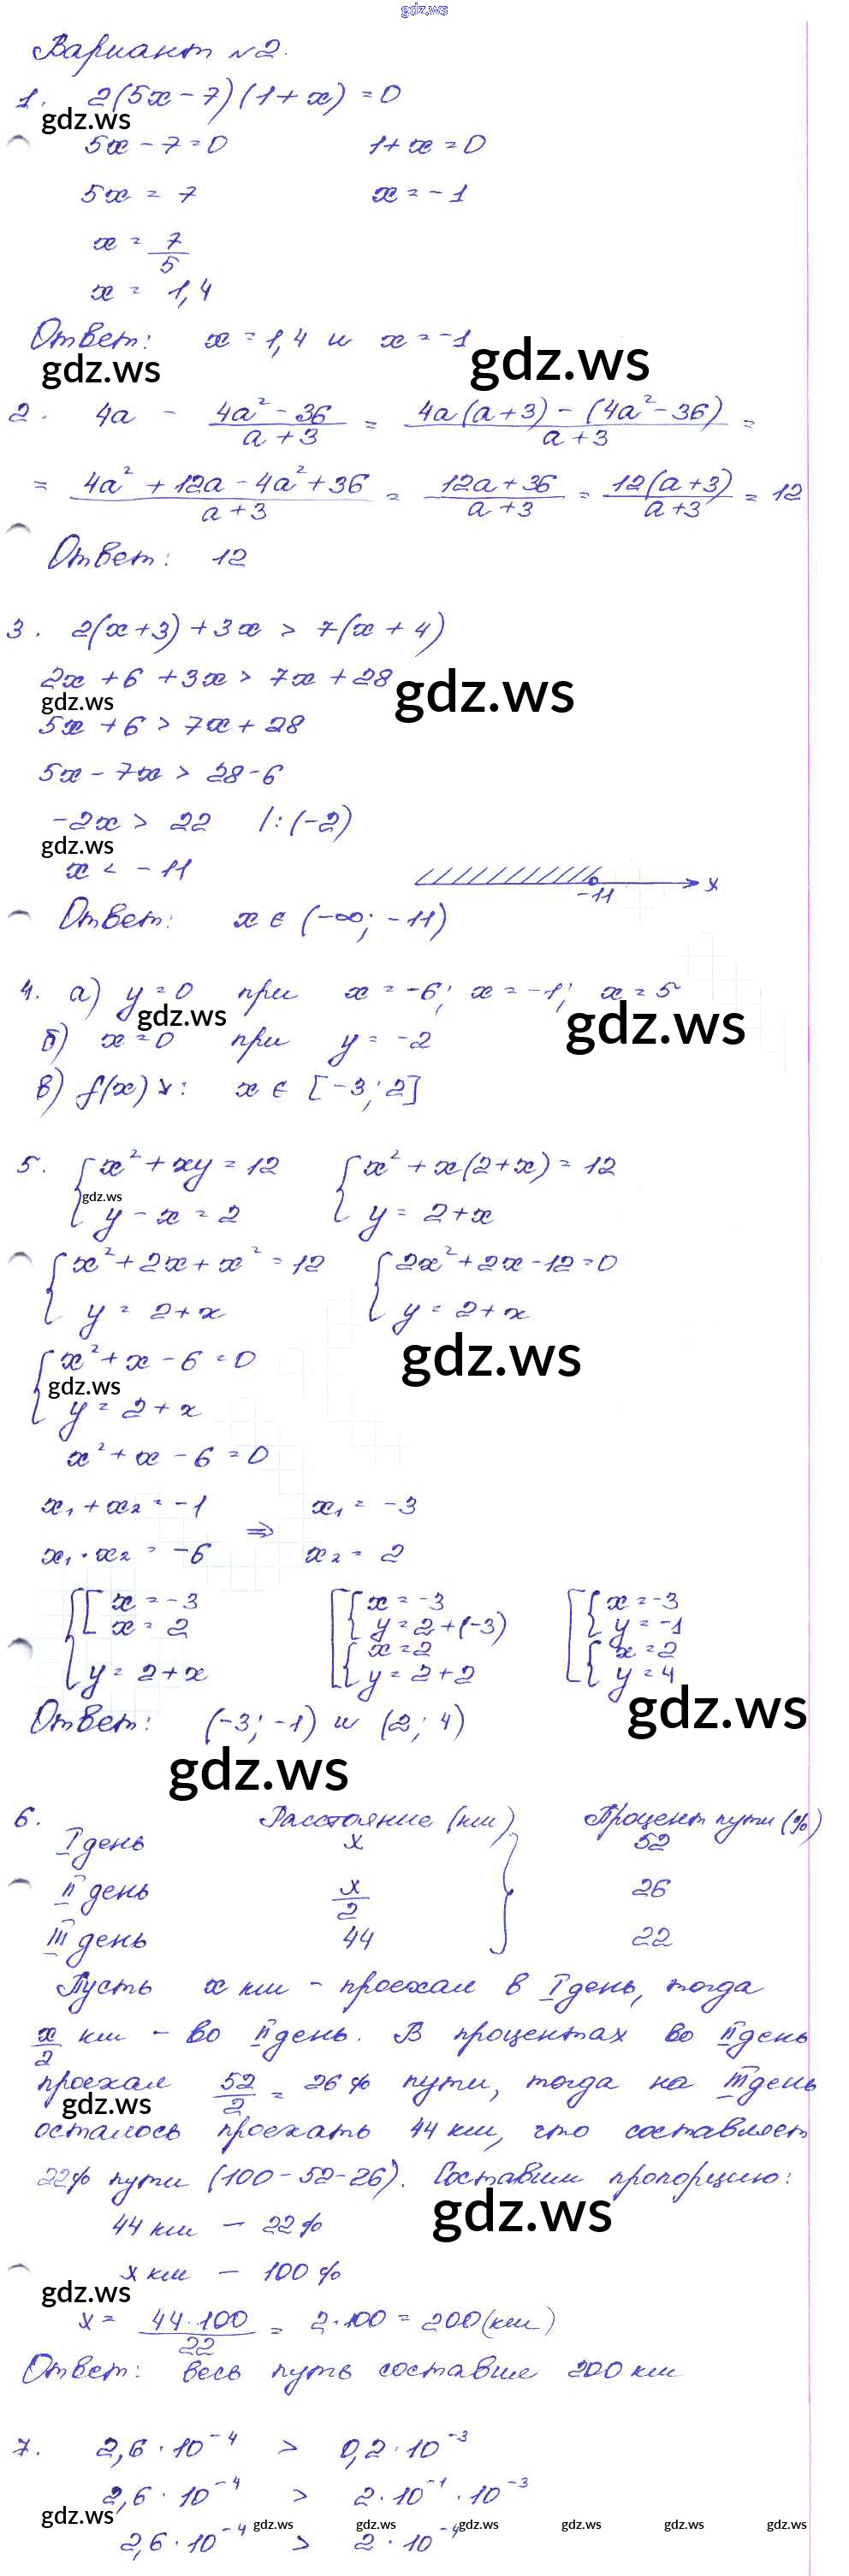 gdz.ws
Вариант №2.
1. 2(5x-7)(1+x)=0
gdz.ws
5x-7=0 1+x=0
5x = 7 x=-1
x = 7/5
x = 1,4
Ответ: x=1,4 и x=-1
gdz.ws gdz.ws
2. 4a - (4a²-36)/(a+3) = (4a(a+3)-(4a²-36))/(a+3) =
= (4a²+12a-4a²+36)/(a+3) = (12a+36)/(a+3) = (12(a+3))/(a+3) = 12
Ответ: 12
3. 2(x+3)+3x > 7(x+4)
2x+6+3x > 7x+28
gdz.ws gdz.ws
5x+6 > 7x+28
5x-7x > 28-6
-2x > 22 |:(-2)
gdz.ws
x < -11
-11 x
Ответ: x ∈ (-∞; -11)
4. а) y=0 при x=-6; x=-1; x=5
gdz.ws gdz.ws
б) x=0 при y=-2
в) f(x)↘: x ∈ [-3; 2]
5. { x²+xy=12 { x²+x(2+x)=12
gdz.ws
y-x=2 y=2+x
{ x²+2x+x²=12 { 2x²+2x-12=0
y=2+x y=2+x
gdz.ws
{ x²+x-6=0
gdz.ws
y=2+x
x²+x-6=0
x₁+x₂=-1 x₁=-3
⇒
x₁·x₂=-6 x₂=2
{ [ x=-3 [ { x=-3 [ { x=-3
x=2 y=2+(-3) y=-1
{ x=2 { x=2
y=2+x y=2+2 y=4
gdz.ws
Ответ: (-3; -1) и (2; 4)
gdz.ws
6. Расстояние (км) Процент пути (%)
I день x 52
II день x/2 26
III день 44 22
Пусть x км - проехал в I день, тогда
x/2 км - во II день. В процентах во II день
проехал 52/2 = 26% пути, тогда на III день
gdz.ws
осталось проехать 44 км, что составляет
22% пути (100-52-26). Составим пропорцию:
44 км — 22%
gdz.ws
x км — 100%
gdz.ws
x = (44·100)/22 = 2·100 = 200 (км)
Ответ: весь путь составил 200 км
7. 2,6·10⁻⁴ > 0,2·10⁻³
2,6·10⁻⁴ > 2·10⁻¹·10⁻³
gdz.ws gdz.ws gdz.ws gdz.ws gdz.ws gdz.ws gdz.ws
2,6·10⁻⁴ > 2·10⁻⁴